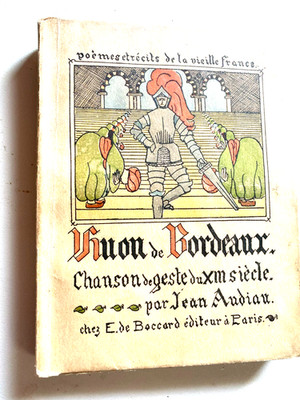 poèmes et récits de la vieille france.
Huon de Bordeaux.
Chanson de geste du XIII siècle.
par Jean Audiau.
chez E. de Boccard éditeur à Paris.